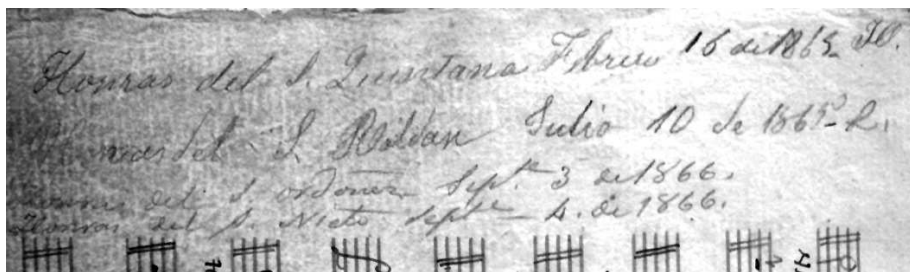 Honras del S. Quintana Febrero 16 de 1865
Honras del S. Roldan Julio 10 de 1865 R.
Honras del S. Ordoñez Sept.e 3 de 1866.
Honras del S. Nieto Septe 4. de 1866.